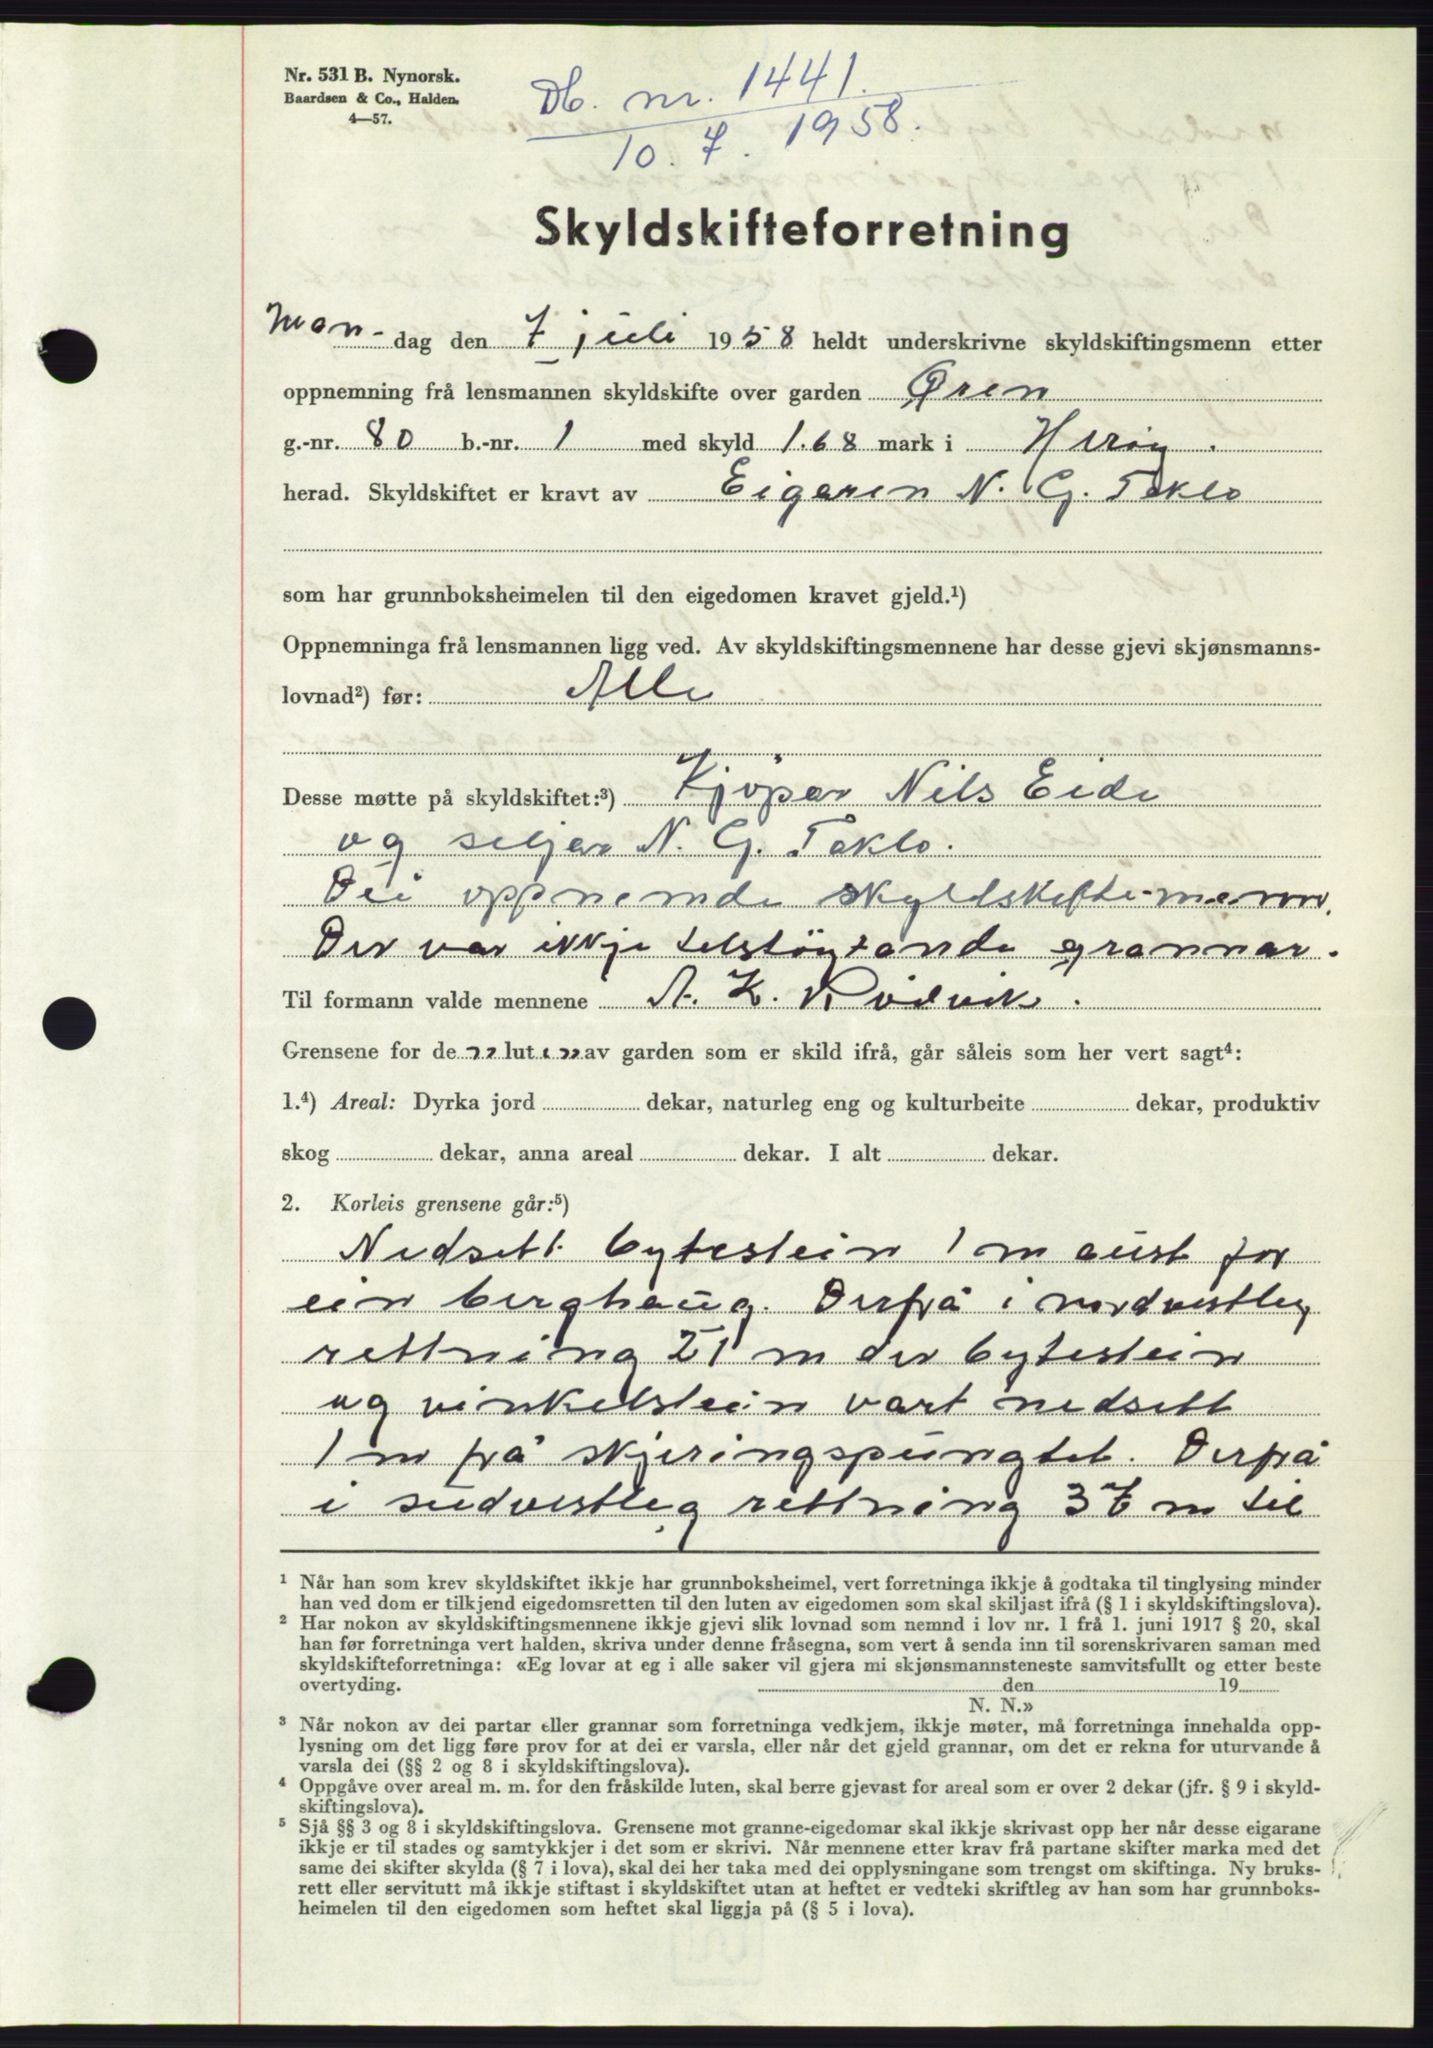 Nr. 531 B. Nynorsk.
Baardsen & Co., Halden.
4—57.
Db. nr. 1441.
10. 7. 1958.
Skyldskifteforretning
Mon- dag den 7 juli 1958 heldt underskrivne skyldskiftingsmenn etter
oppnemning frå lensmannen skyldskifte over garden Øren
g.-nr. 80 b.-nr. 1 med skyld 1.68 mark i Herøy.
herad. Skyldskiftet er kravt av Eigaren N. G. Taklo
som har grunnboksheimelen til den eigedomen kravet gjeld.¹)
Oppnemninga frå lensmannen ligg ved. Av skyldskiftingsmennene har desse gjevi skjønsmanns-
lovnad²) før: Alle
Desse møtte på skyldskiftet:³) Kjöpar Nils Eide
og seljar N. G. Taklo.
Dei oppnemde skyldskifte-menn.
Der var ikkje telstöytande grannar.
Til formann valde mennene A. K. Rödvik.
Grensene for de nn lut en av garden som er skild ifrå, går såleis som her vert sagt⁴:
1.⁴) Areal: Dyrka jord dekar, naturleg eng og kulturbeite dekar, produktiv
skog dekar, anna areal dekar. I alt dekar.
2. Korleis grensene går:⁵)
Nedsett bytestein 1 m aust for
ein berghaug. Derfrå i nordvestleg
rettning 21 m der bytestein
og vinkelstein vart nedsett
1 m frå skjeringspungtet. Derfrå
i sudvestleg rettning 37 m til
¹ Når han som krev skyldskiftet ikkje har grunnboksheimel, vert forretninga ikkje å godtaka til tinglysing minder
han ved dom er tilkjend eigedomsretten til den luten av eigedomen som skal skiljast ifrå (§ 1 i skyldskiftingslova).
² Har nokon av skyldskiftingsmennene ikkje gjevi slik lovnad som nemnd i lov nr. 1 frå 1. juni 1917 § 20, skal
han før forretninga vert halden, skriva under denne fråsegna, som vert å senda inn til sorenskrivaren saman med
skyldskifteforretninga: «Eg lovar at eg i alle saker vil gjera mi skjønsmannsteneste samvitsfullt og etter beste
overtyding. den 19
N. N.»
³ Når nokon av dei partar eller grannar som forretninga vedkjem, ikkje møter, må forretninga innehalda opp-
lysning om det ligg føre prov for at dei er varsla, eller når det gjeld grannar, om det er rekna for uturvande å
varsla dei (§§ 2 og 8 i skyldskiftingslova).
⁴ Oppgåve over areal m. m. for den fråskilde luten, skal berre gjevast for areal som er over 2 dekar (jfr. § 9 i skyld-
skiftingslova).
⁵ Sjå §§ 3 og 8 i skyldskiftingslova. Grensene mot granne-eigedomar skal ikkje skrivast opp her når desse eigarane
ikkje er til stades og samtykkjer i det som er skrivi. Når mennene etter krav frå partane skifter marka med det
same dei skifter skylda (§ 7 i lova), skal dei her taka med dei opplysningane som trengst om skiftinga. Ny bruks-
rett eller servitutt må ikkje stiftast i skyldskiftet utan at heftet er vedteki skriftleg av han som har grunnboks-
heimelen til den eigedomen som heftet skal liggja på (§ 5 i lova).